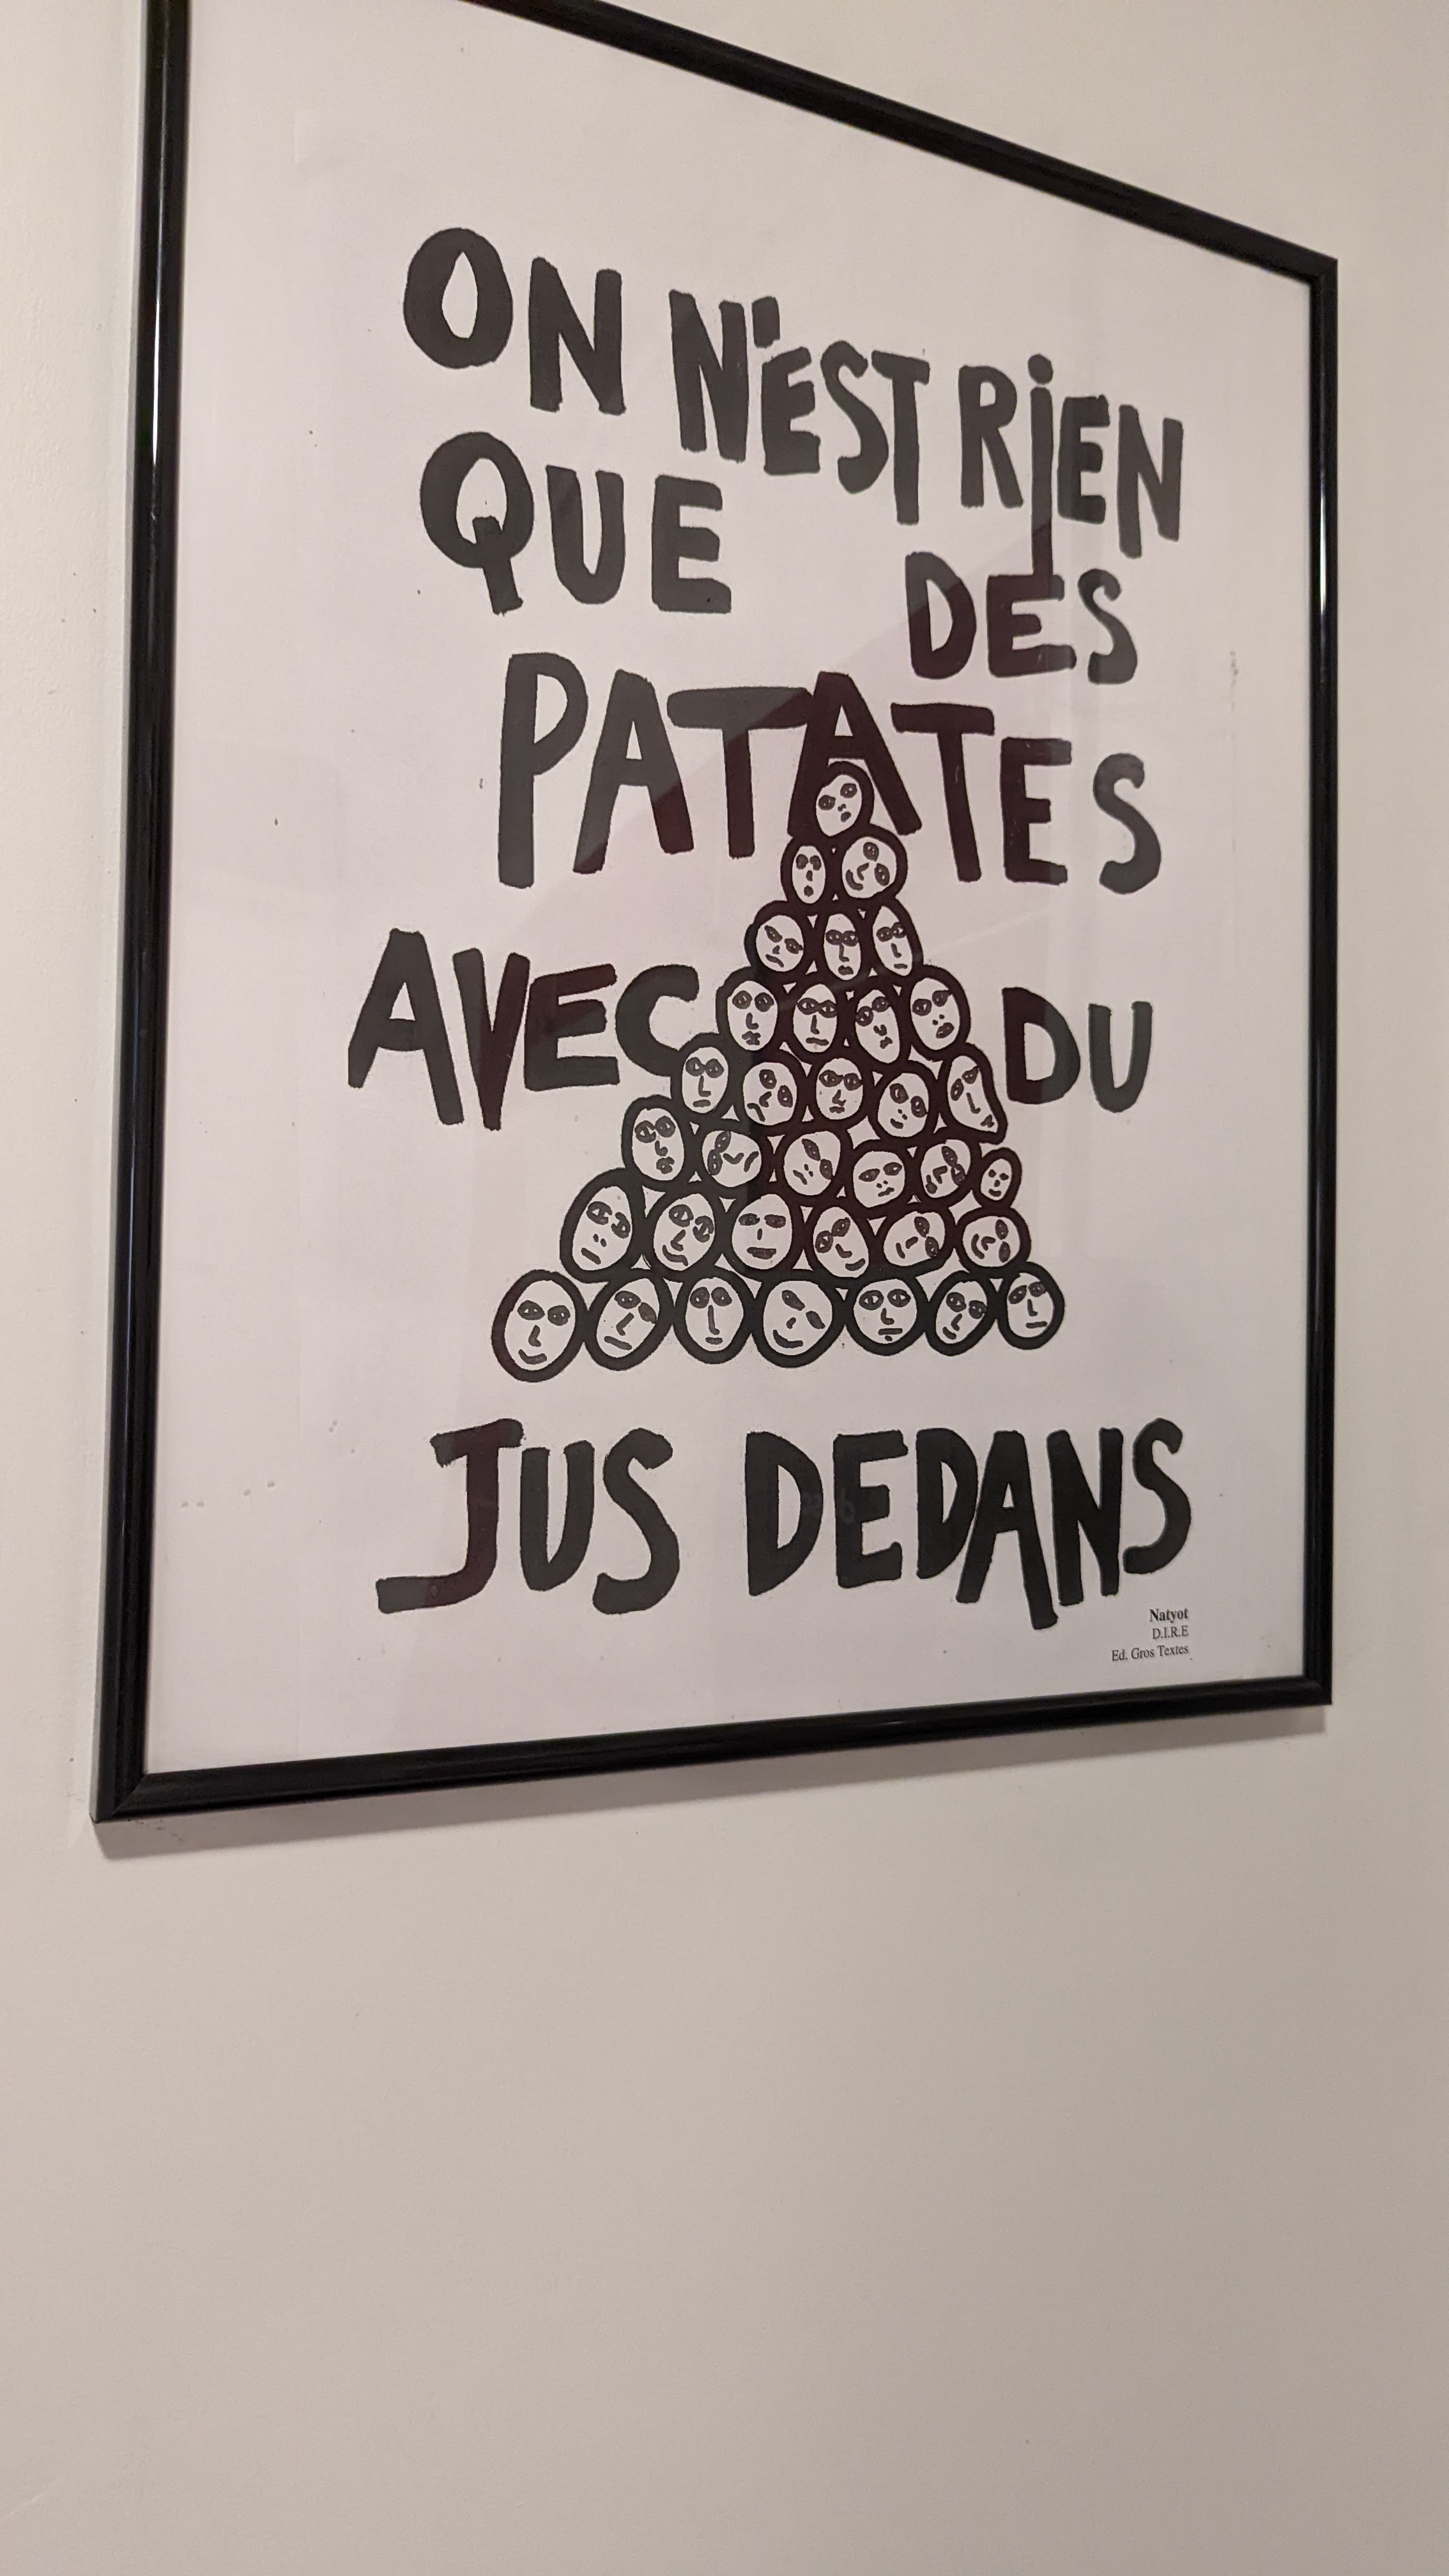 ON N'EST RIEN
QUE DES
PATATES
AVEC DU
JUS DEDANS
Natyot
D.I.R.E
Ed. Gros Textes